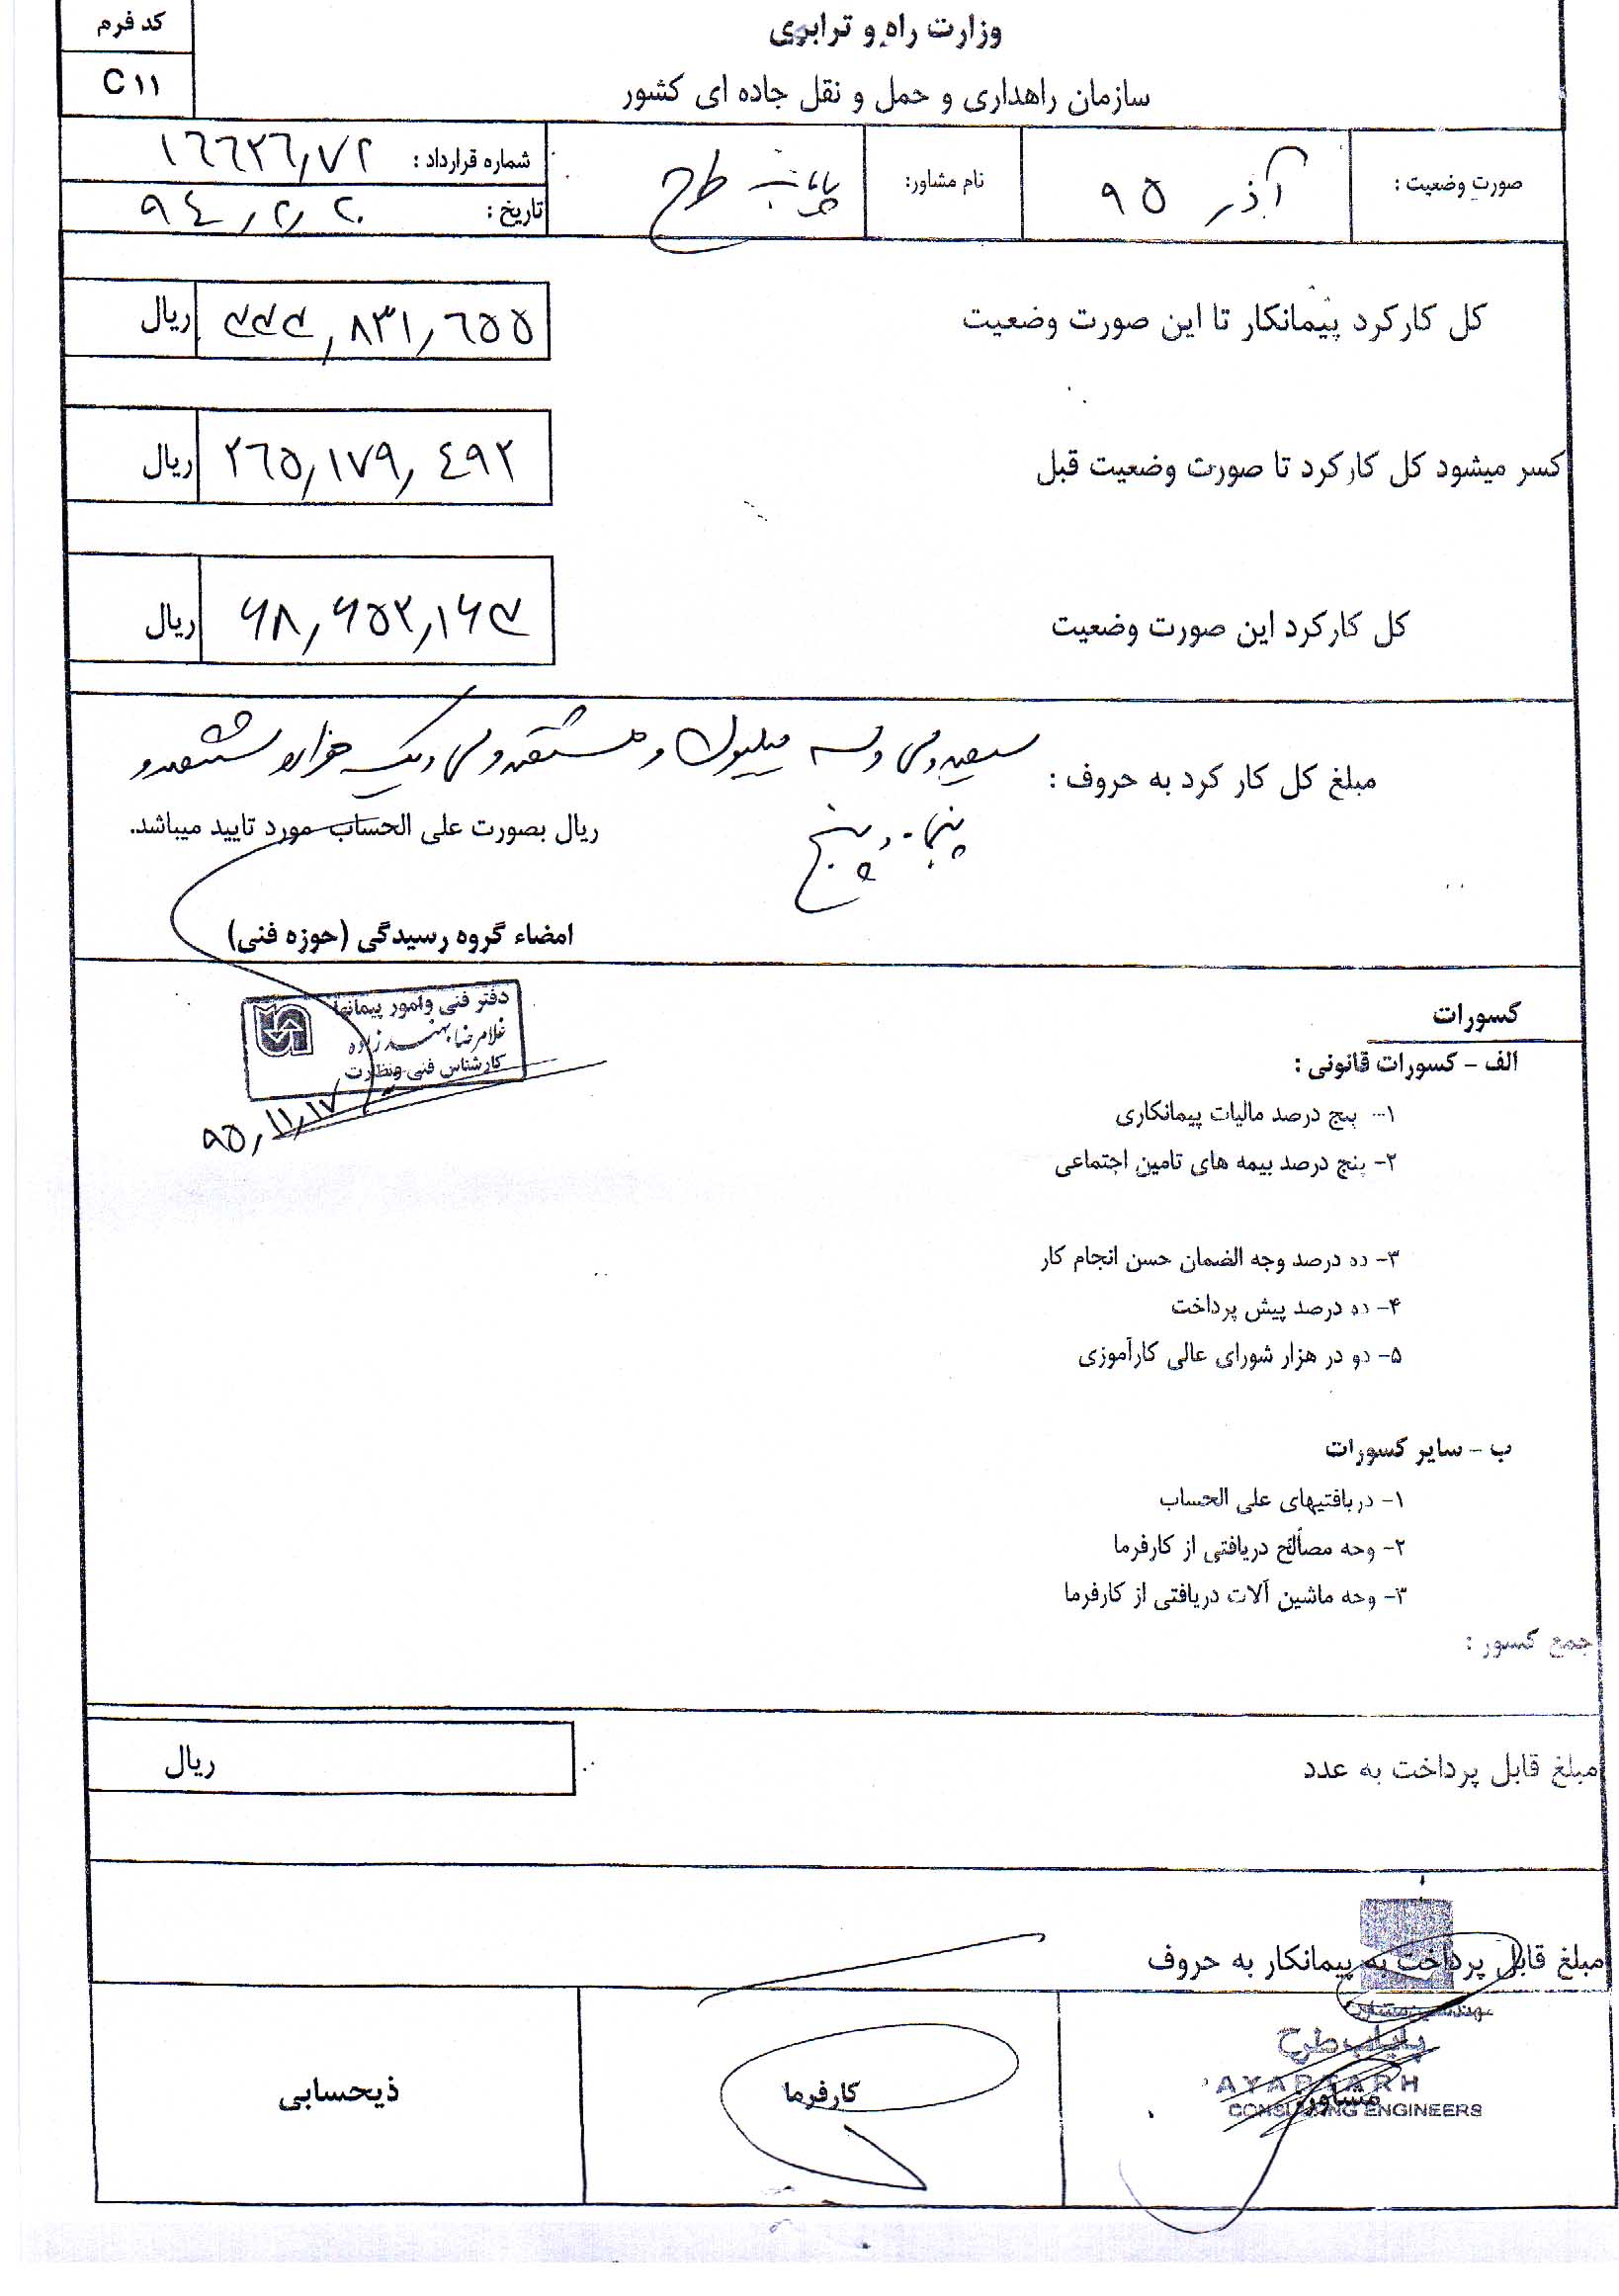 کد فرم
C۱۱
وزارت راه و ترابری
سازمان راهداری و حمل و نقل جاده ای کشور
صورت وضعیت : آذر ۹۵
نام مشاور: پایاب طرح
شماره قرارداد : ۱۶۶۲۶/۷۲
تاریخ : ۹۴/۲/۲۰
کل کارکرد پیمانکار تا این صورت وضعیت ۳۳۳/۸۳۱/۶۵۵ ریال
کسر میشود کل کارکرد تا صورت وضعیت قبل ۲۶۵/۱۷۹/۴۹۲ ریال
کل کارکرد این صورت وضعیت ۶۸/۶۵۲/۱۶۳ ریال
مبلغ کل کار کرد به حروف : سیصد و سی و سه میلیون و هشتصد و سی و یک هزار و ششصد و
پنجاه و پنج ریال بصورت علی الحساب مورد تایید میباشد.
امضاء گروه رسیدگی (حوزه فنی)
دفتر فنی وامور پیمانها
غلامرضا بهند زاده
کارشناس فنی ونظارت
۹۵/۱۱/۱۷
کسورات
الف - کسورات قانونی :
۱- پنج درصد مالیات پیمانکاری
۲- پنج درصد بیمه های تامین اجتماعی
۳- ده درصد وجه الضمان حسن انجام کار
۴- ده درصد پیش پرداخت
۵- دو در هزار شورای عالی کارآموزی
ب - سایر کسورات
۱- دریافتیهای علی الحساب
۲- وجه مصالح دریافتی از کارفرما
۳- وجه ماشین آلات دریافتی از کارفرما
جمع کسور :
مبلغ قابل پرداخت به عدد ریال
مبلغ قابل پرداخت به پیمانکار به حروف
مهندسین مشاور
پایاب طرح
AYABTARH
CONSULTING ENGINEERS
مشاور
کارفرما
ذیحسابی